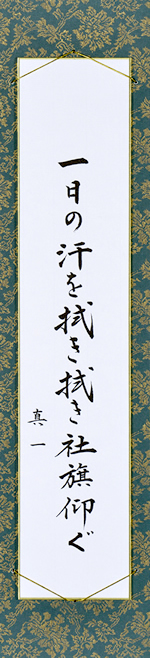 一日の汗を拭き拭き社旗仰ぐ
真一